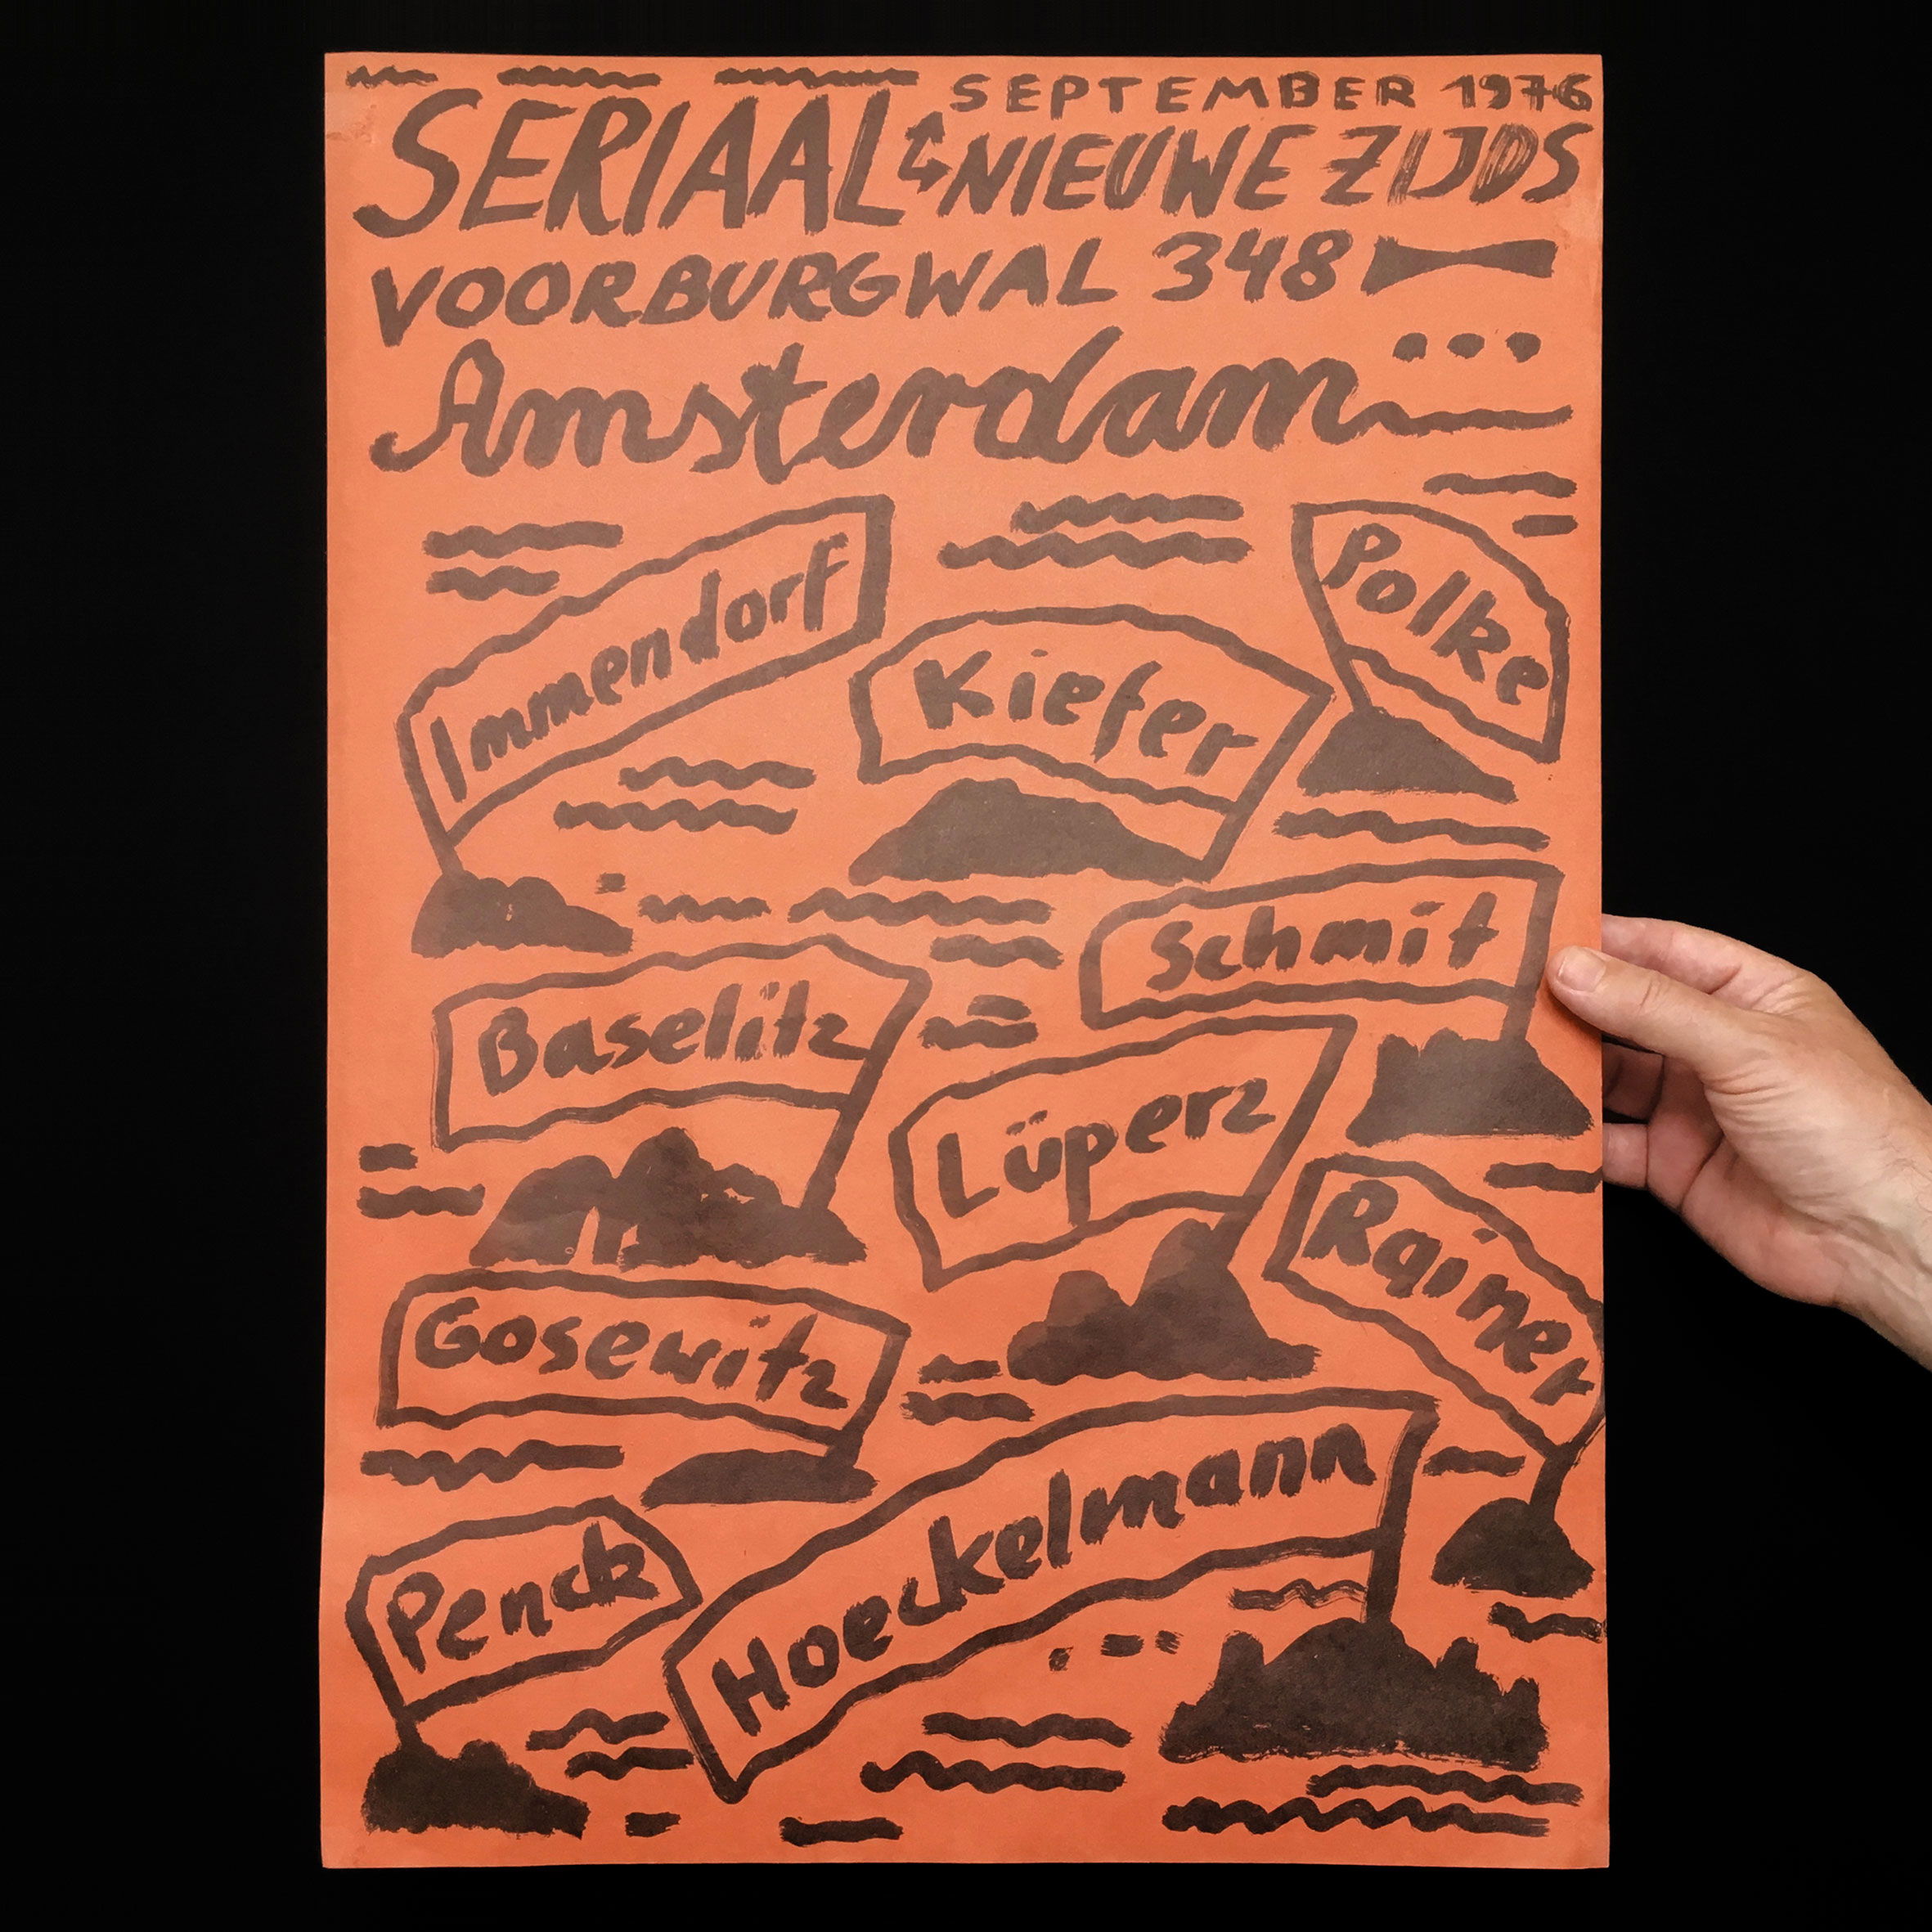 SEPTEMBER 1976
SERIAAL NIEUWE ZIJDS
VOORBURGWAL 348
Amsterdam
Immendorf
Kiefer
Polke
Schmit
Baselitz
Lüperz
Rainer
Gosewitz
Hoeckelmann
Penck